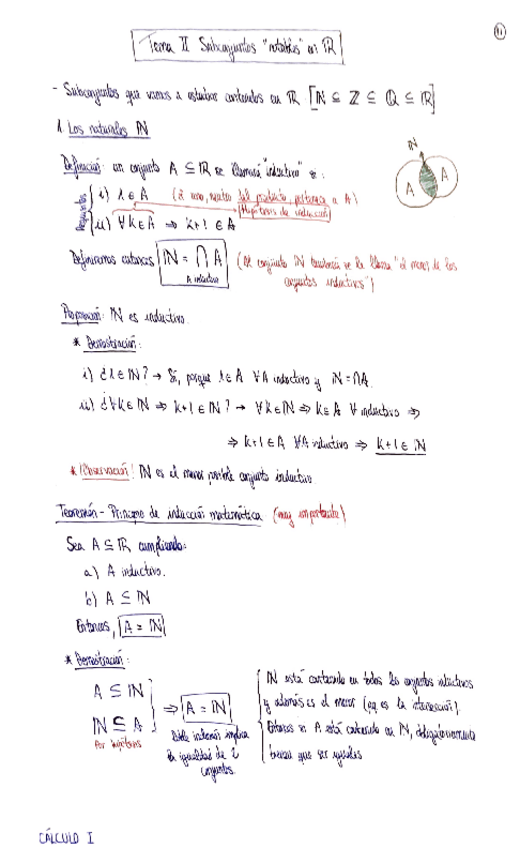 Tema II Subconjuntos "notables" en ℝ
- Subconjuntos que vamos a estudiar contenidos en ℝ [ℕ ⊆ ℤ ⊆ ℚ ⊆ ℝ]
1. Los naturales ℕ
Definición: un conjunto A ⊆ ℝ se llamará "inductivo" si:
Requisitos
i) 1 ∈ A (el uno, neutro del producto, pertenece a A)
Hipótesis de inducción
ii) ∀k∈A ⇒ k+1 ∈ A
ℕ
A A
Definiremos entonces ℕ = ⋂ A (el conjunto ℕ también se le llama "el menor de los
A inductivo
conjuntos inductivos")
Proposición: ℕ es inductivo.
* Demostración:
i) ¿1∈ℕ? → Sí, porque 1∈A ∀A inductivo y ℕ = ∩A.
ii) ¿∀k∈ℕ ⇒ k+1∈ℕ? → ∀k∈ℕ ⇒ k∈A ∀ inductivo ⇒
⇒ k+1∈A ∀A inductivo ⇒ k+1∈ℕ
* ¡Observación! ℕ es el menor posible conjunto inductivo
Teorema - Principio de inducción matemática (muy importante)
Sea A ⊆ ℝ cumpliendo:
a) A inductivo.
b) A ⊆ ℕ
Entonces, A = ℕ
* Demostración:
A ⊆ ℕ
ℕ ⊆ A
Por hipótesis
⇒ A = ℕ
Doble inclusión implica
la igualdad de 2
conjuntos.
ℕ está contenido en todos los conjuntos inductivos
y además es el menor (pq es la intersección).
Entonces si A está contenido en ℕ, obligatoriamente
tienen que ser iguales
CÁLCULO I